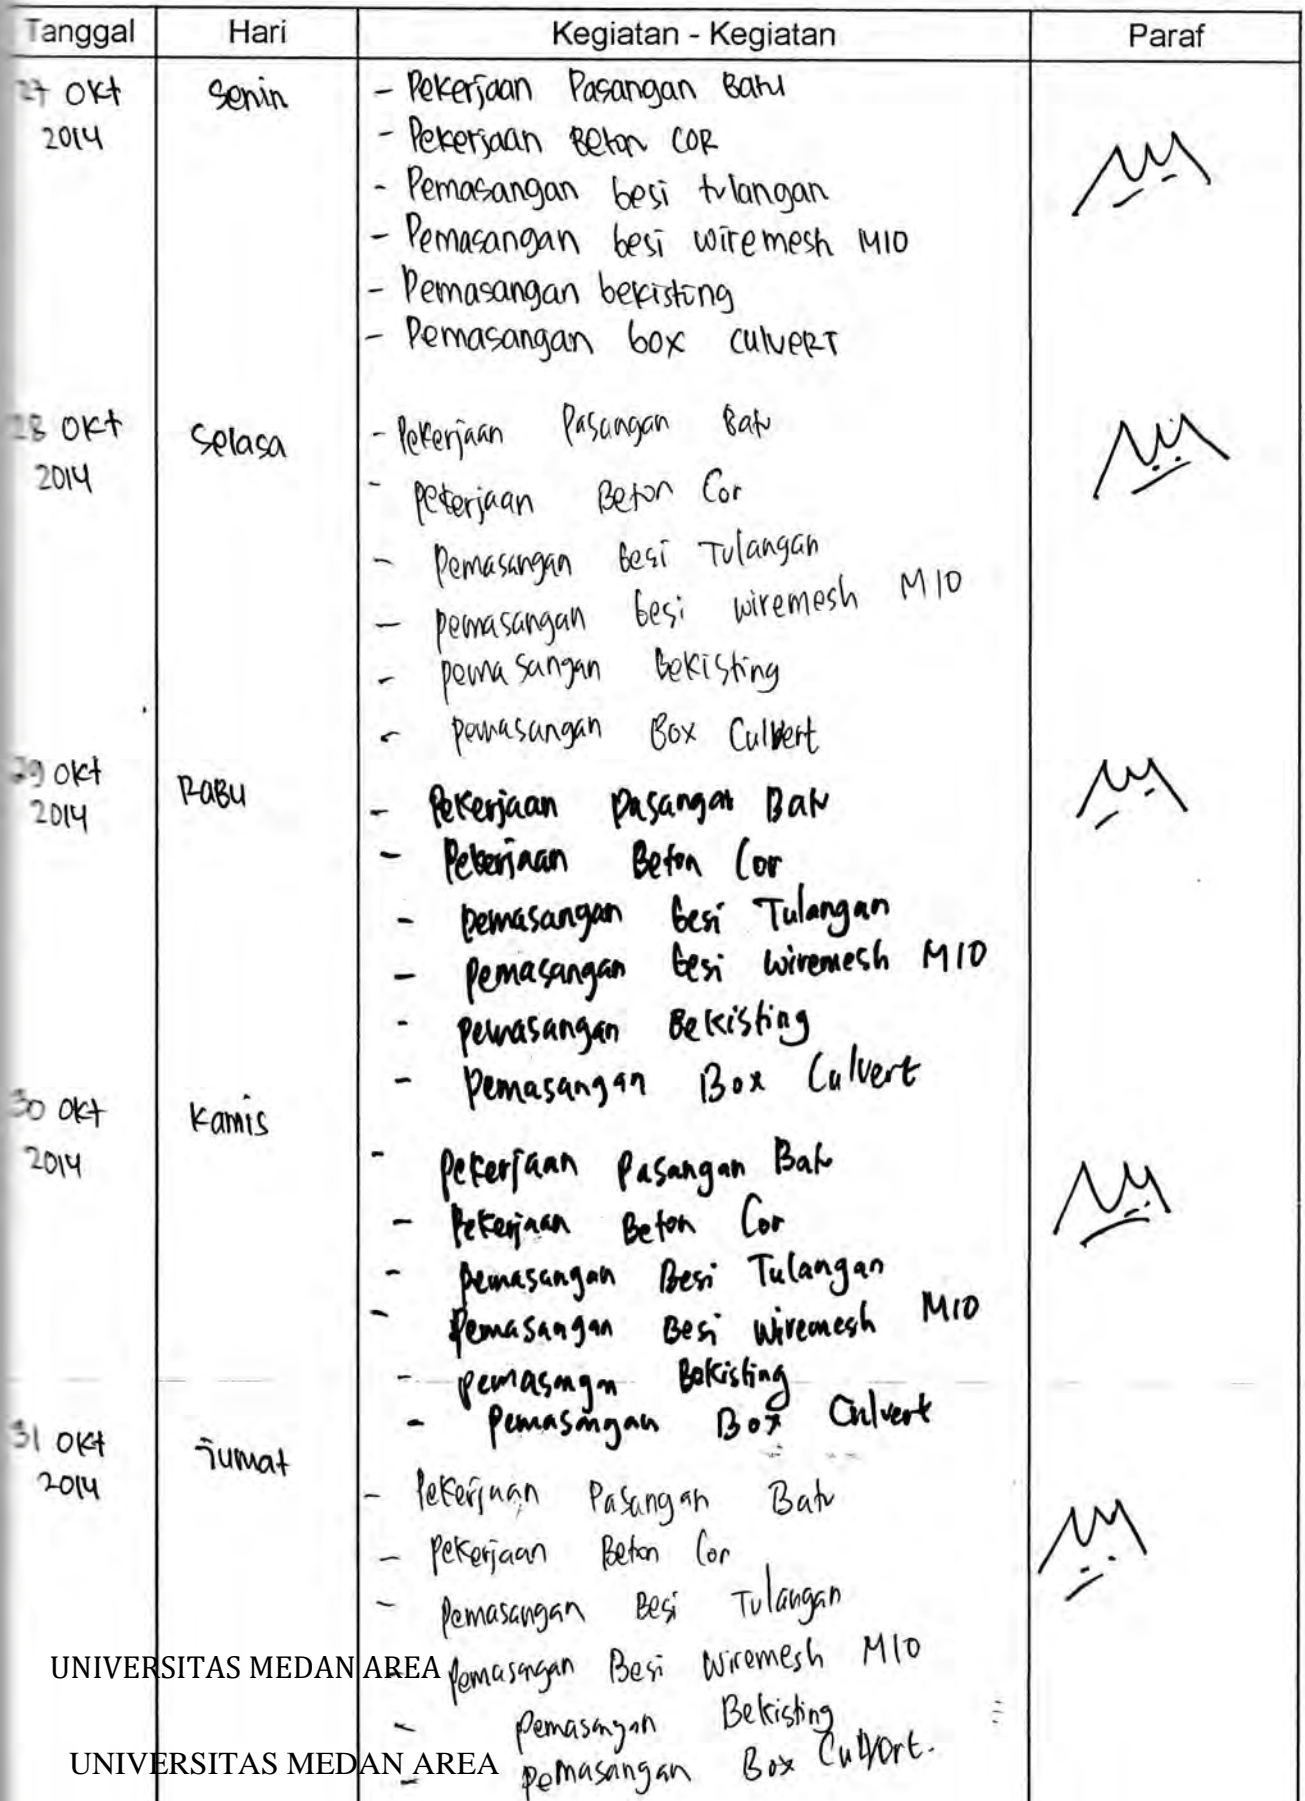 Tanggal Hari Kegiatan - Kegiatan Paraf
27 Okt Senin - Pekerjaan Pasangan Batu
2014 - Pekerjaan Beton COR
- Pemasangan besi tulangan
- Pemasangan besi wiremesh M10
- Pemasangan bekisting
- Pemasangan box culvert
28 Okt Selasa - Pekerjaan Pasangan Batu
2014 - pekerjaan Beton Cor
- Pemasangan besi Tulangan
- pemasangan besi wiremesh M10
- pemasangan Bekisting
- pemasangan Box Culvert
29 Okt Rabu - Pekerjaan Pasangan Batu
2014 - Pekerjaan Beton Cor
- pemasangan besi Tulangan
- Pemasangan besi wiremesh M10
- pemasangan Bekisting
- Pemasangan Box Culvert
30 Okt Kamis
2014 - Pekerjaan Pasangan Batu
- Pekerjaan Beton Cor
- pemasangan Besi Tulangan
- Pemasangan Besi wiremesh M10
- pemasangn Bekisting
- Pemasangan Box Culvert
31 Okt Jumat
2014 - Pekerjaan Pasangan Batu
- Pekerjaan Beton Cor
- Pemasangan Besi Tulangan
UNIVERSITAS MEDAN AREA Pemasangan Besi Wiremesh M10
- Pemasangan Bekisting
UNIVERSITAS MEDAN AREA - Pemasangan Box Culvert.